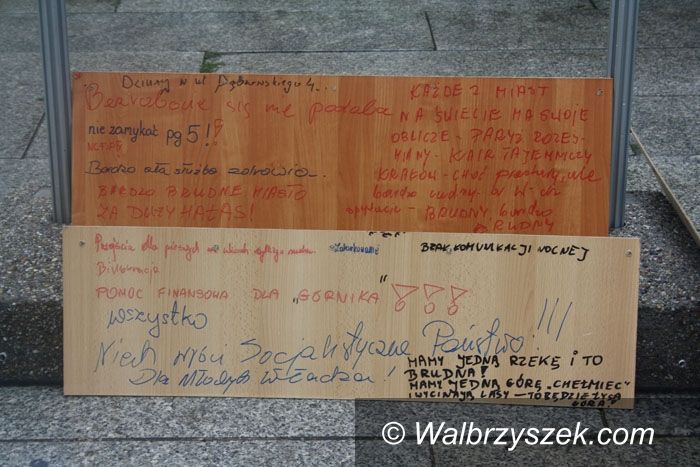 Dziury w ul. Dąbrowskiego 4.
Bezrobocie się nie podoba
nie zamykać pg 5!!
Bardzo zła służba zdrowia..
BARDZO BRUDNE MIASTO
ZA DUŻY HAŁAS!
KAŻDE Z MIAST
NA ŚWIECIE MA SWOJE
OBLICZE - PARYŻ ROZEŚ-
MIANY - KAIR TAJEMNICZY
KRAKÓW - CHOĆ
bardzo
BRUDNY bardzo
BRUDNY
Przejścia dla pieszych
Zakorkowanie
BRAK KOMUNIKACJI NOCNEJ
Biurokracja
POMOC FINANSOWA DLA „GÓRNIKA" !!!
wszystko
Niech wróci Socjalistyczne Państwo!!!
Dla Młodych Władza!
MAMY JEDNĄ RZEKĘ I TO
BRUDNA!
MAMY JEDNĄ GÓRĘ „CHEŁMIEC"
I WYCINAJĄ LASY - TO BĘDZIE ŁYSA
GÓRA!
© Walbrzyszek.com